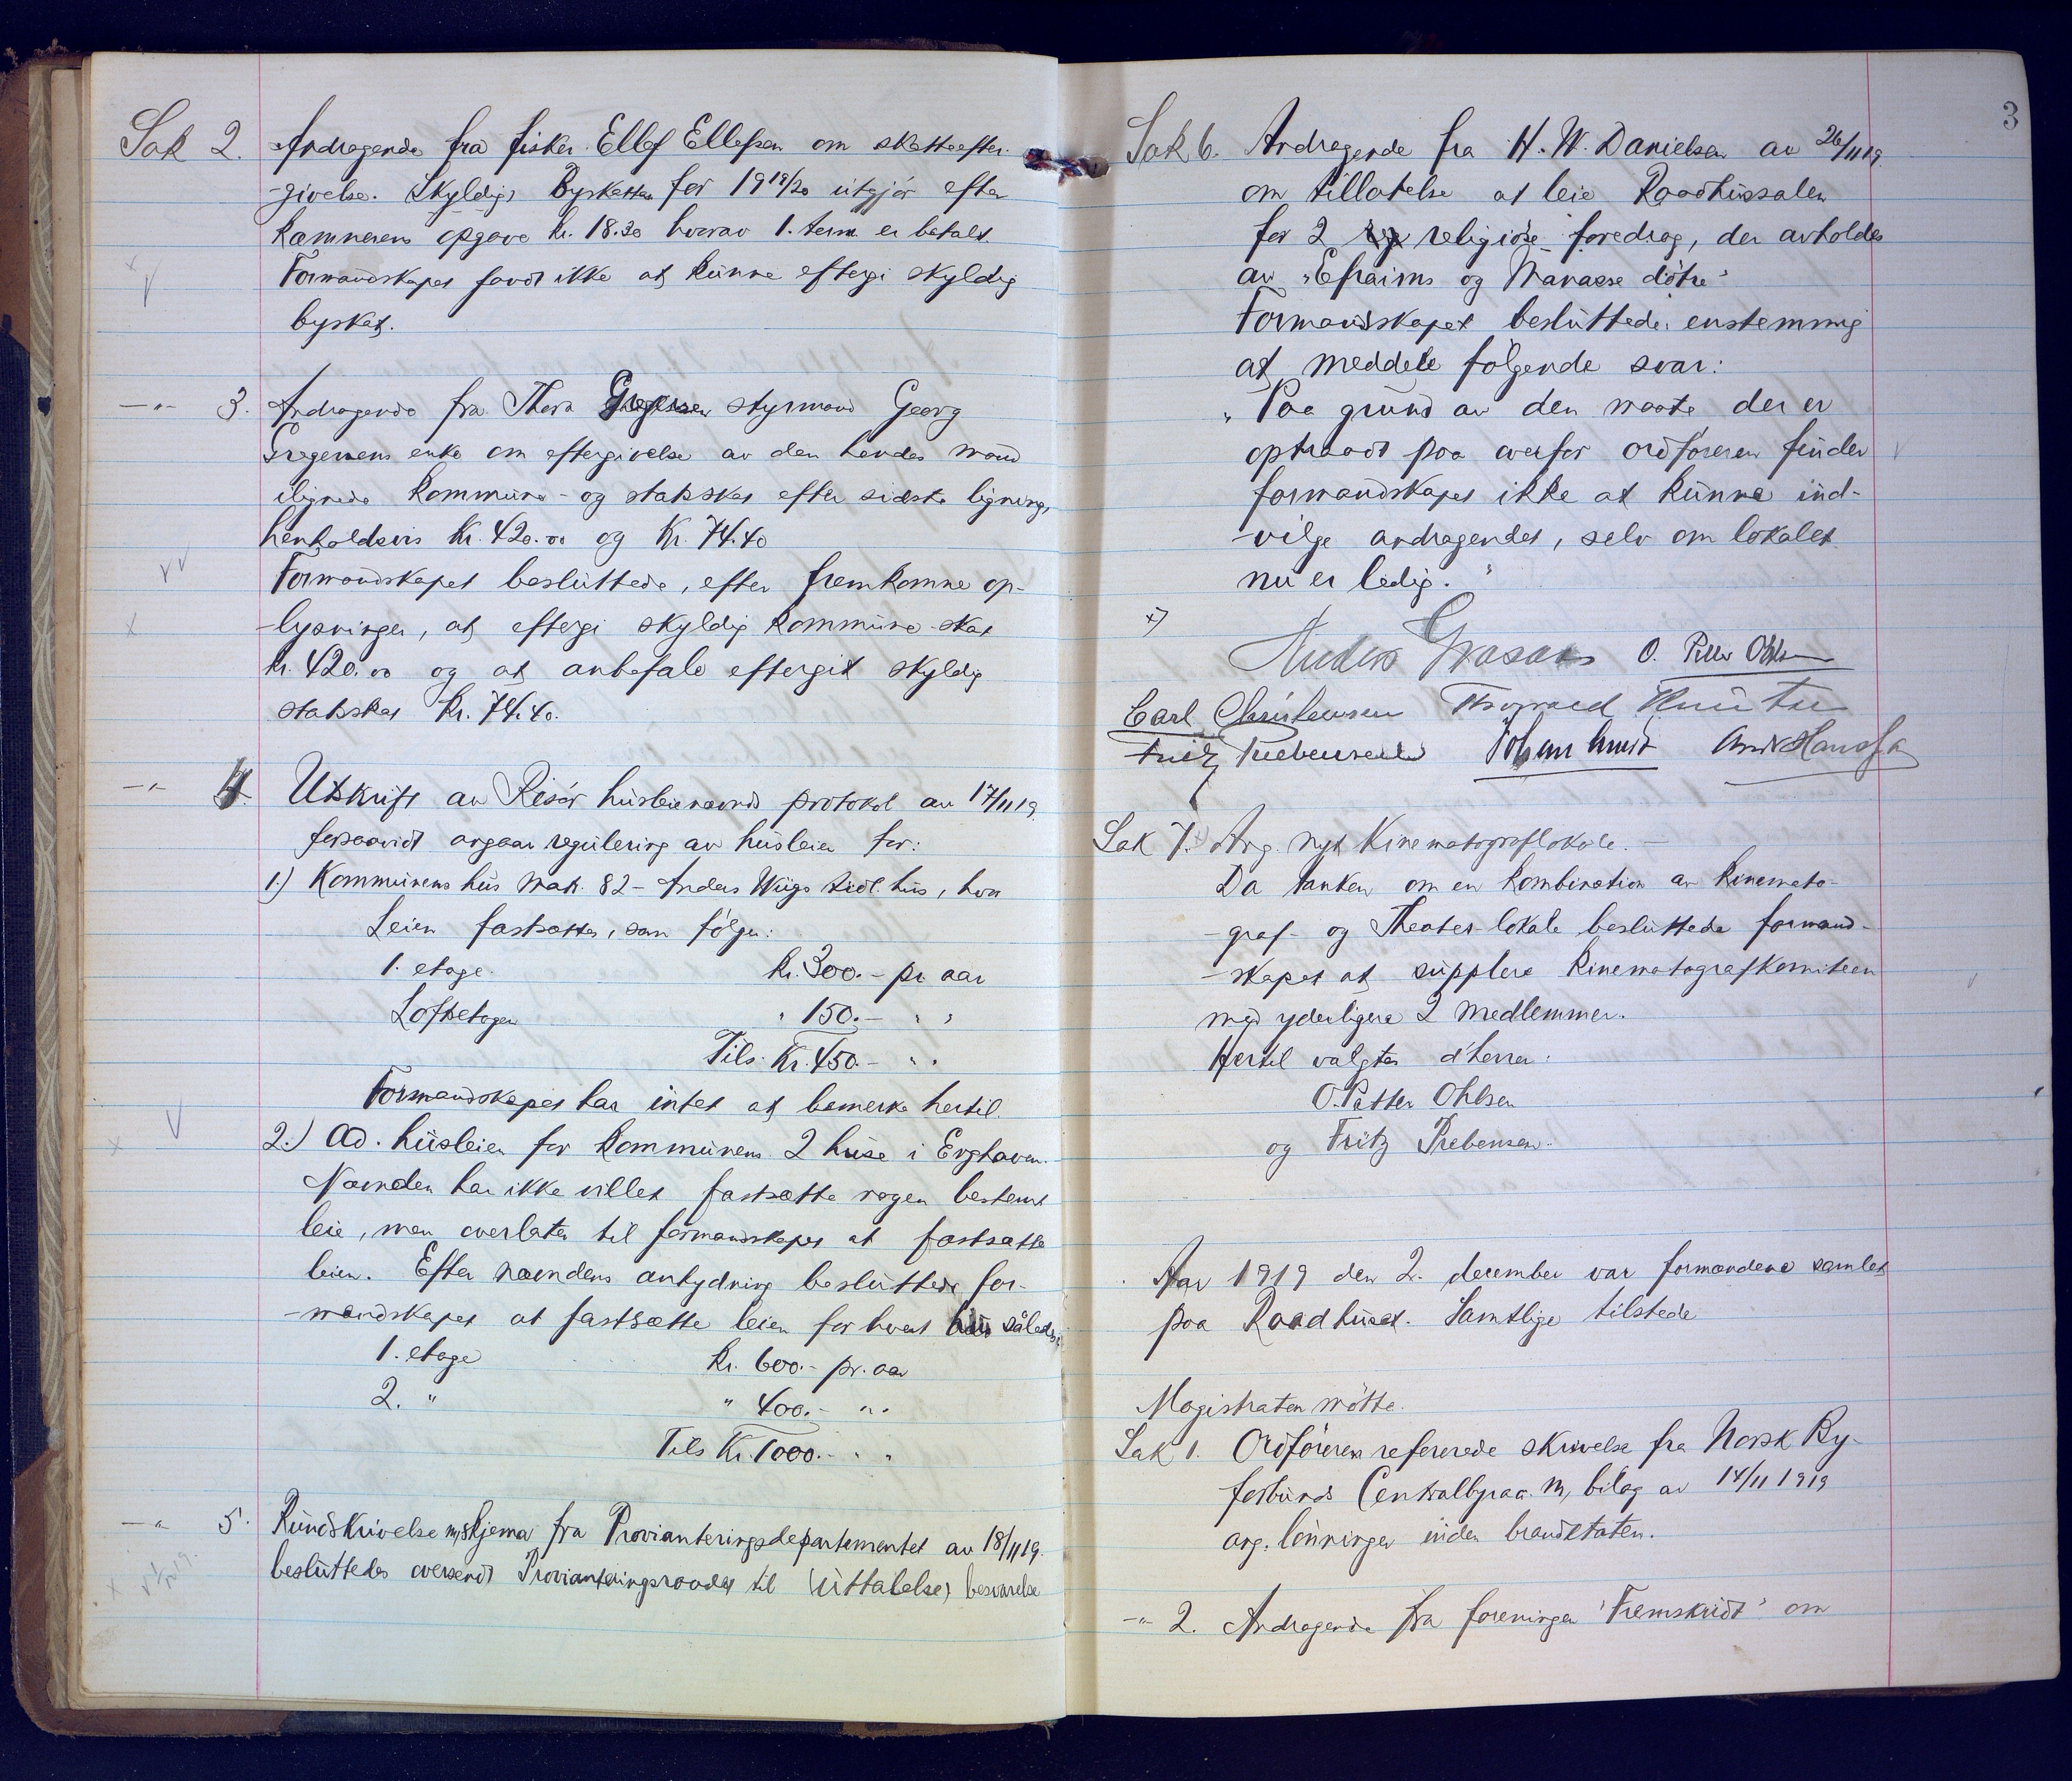 Sak 2. Andragende fra fisker Ellef Ellefsen om skatteefter-
-givelse. Skyldig Byskatten for 1919/20 utgjör efter
Kæmnerens opgave kr. 18.30 hvorav 1. term. er betalt.
Formandskapet fandt ikke at kunne eftergi skyldig
byskat.
—"— 3. Andragende fra Thora Gregersen styrmand Georg
Gregersens enke om eftergivelse av den hendes mand
ilignede kommune- og statsskat efter sidste ligning,
henholdsvis Kr. 420.00 og Kr. 74.40
Formandskapet besluttede, efter fremkomne op-
-lysninger, at eftergi skyldig kommune-skat
kr. 420.00 og at anbefale eftergit skyldig
statsskat Kr. 74.40.
—"— 4. Utskrift av Risör husleienævnds protokol av 17/11 19.
forsaavidt angaar regulering av husleien for:
1.) Kommunens hus Matr. 82 - Anders Wiigs tidl. hus, hvor
Leien fastsattes, som følger:
1. etage. kr. 300.- pr aar
Loftsetagen " 150.- " "
Tils. Kr. 450.- " "
Formandskapet har intet at bemerke hertil.
2.) Ad. husleien for kommunens 2 huse i Enghaven.
Nævnden har ikke villet fastsætte nogen bestemt
leie, men overlater til formandskapet at fastsætte
leien. Efter nævndens antydning besluttede for-
-mandskapet at fastsætte leien for hvert hus således:
1. etage kr. 600.- pr. aar
2. " " 400.- " "
Tils Kr. 1000.- " "
—"— 5. Rundskrivelse m/skjema fra Provianteringsdepartementet av 18/11 19.
besluttedes oversendt Provianteringsraadet til (uttalelse) besvarelse
3
Sak 6. Andragende fra H. W. Danielsen av 26/11 19.
om tillatelse at leie Raadhussalen
for 2 religiöse foredrag, der avholdes
av "Efraims og Manasse döttre"
Formandskapet besluttede enstemmig
at meddele følgende svar:
"Paa grund av den maate der er
optraadt paa overfor ordföreren finder
formandskapet ikke at kunne ind-
-vilge andragendet, selv om lokalet
nu er ledig."
x)
O. Petter Ohlsen
Carl Christensen Thorvald Knutsen
Fritz Prebensen
Sak 7. x) Ang. nyt Kinematograflokale. —
Da tanken om en kombination av kinemato-
-graf- og Theater-lokale besluttede formand-
-skapet at supplere kinematografkomiteen
med yderligere 2 medlemmer.
Hertil valgtes d'herrer:
O. Petter Ohlsen
og Fritz Prebensen.
Aar 1919 den 2. december var formændene samlet
paa Raadhuset. Samtlige tilstede
Magistraten mötte.
Sak 1. Ordföreren refererede skrivelse fra Norsk By-
forbunds Centralbyraa m, bilag av 14/11 1919
ang. lönninger inden brandetaten.
—"— 2. Andragende fra foreningen "Fremskridt" om